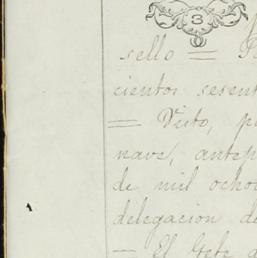 3
sello =
cientos sesent
= Visto, p
nave, antep
de mil ocho
delegacion de
— El Gefe